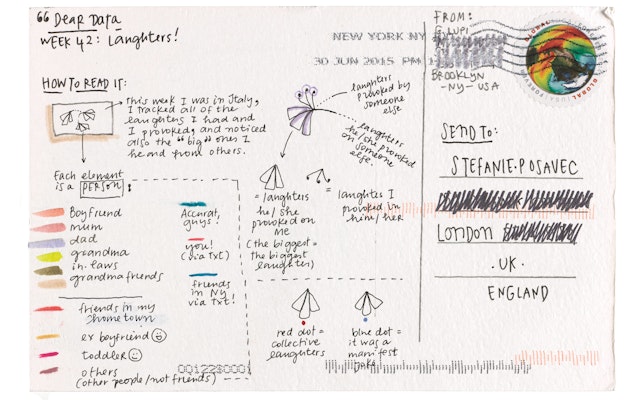 “ Dear Data
WEEK 42: Laughters!
HOW TO READ IT:
This week I was in Italy,
I tracked all of the
laughters I had and
I provoked, and noticed
also the "big" ones I
heard from others.
Each element
is a person:
Boyfriend
mum
dad
grandma
in-laws
grandma friends
friends in my
hometown
ex boyfriend
toddler
others
(other people/not friends)
Accurat,
guys!
you!
(via txt)
friends
in NY
via txt!
laughters
provoked by
someone
else
laughters
he/she provoked
on someone
else.
= laughters
he/she
provoked on
me
(the biggest =
the biggest
laughter)
= laughters I
provoked in
him/her
red dot =
collective
laughters
blue dot =
it was a
manifest
joke
NEW YORK NY
30 JUN 2015 PM
FROM:
G. LUPI
BROOKLYN
-NY- USA
GLOBAL
FOREVER
SEND TO:
STEFANIE·POSAVEC
LONDON
·UK·
ENGLAND